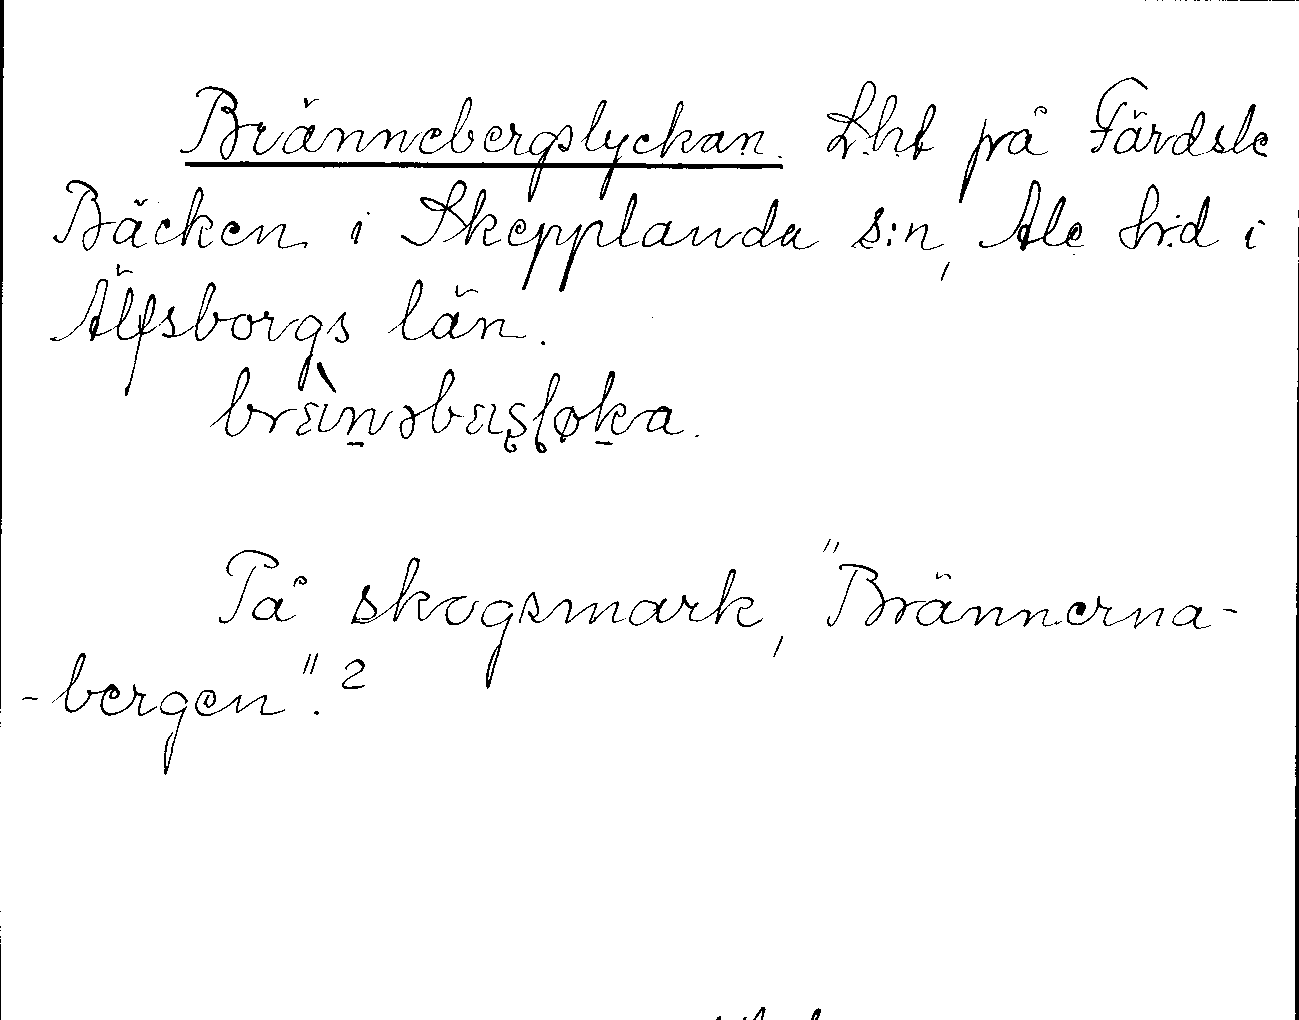 Brännebergslyckan. L.h.t på Färdsle
Bäcken i Skepplanda s:n, Ale h:d i
Älfsborgs län.
På skogsmark, "Brännerna-
-bergen".2